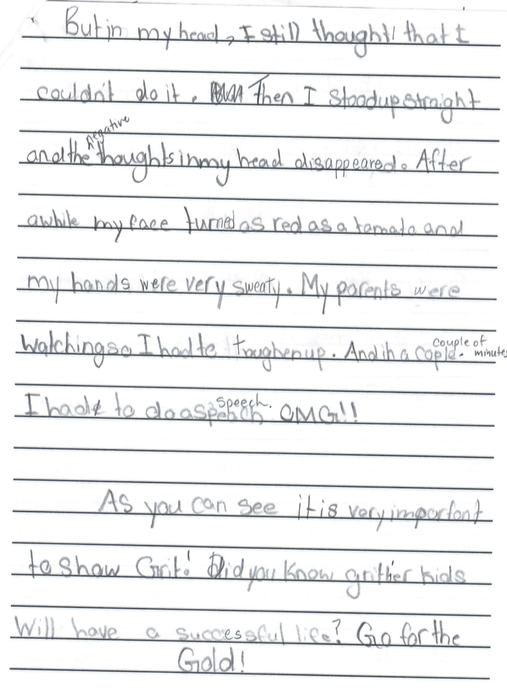 But in my head, I still thought that I
couldn't do it. Then I stood up straight
and the negative thoughts in my head disappeared. After
awhile my face turned as red as a tamato and
my hands were very sweaty. My parents were
watching so I had to toughen up. And in a cople. couple of minutes
I had to do a speach speech. OMG!!
As you can see it is very important
to show Grit! Did you know grither kids
will have a successful life? Go for the
Gold!